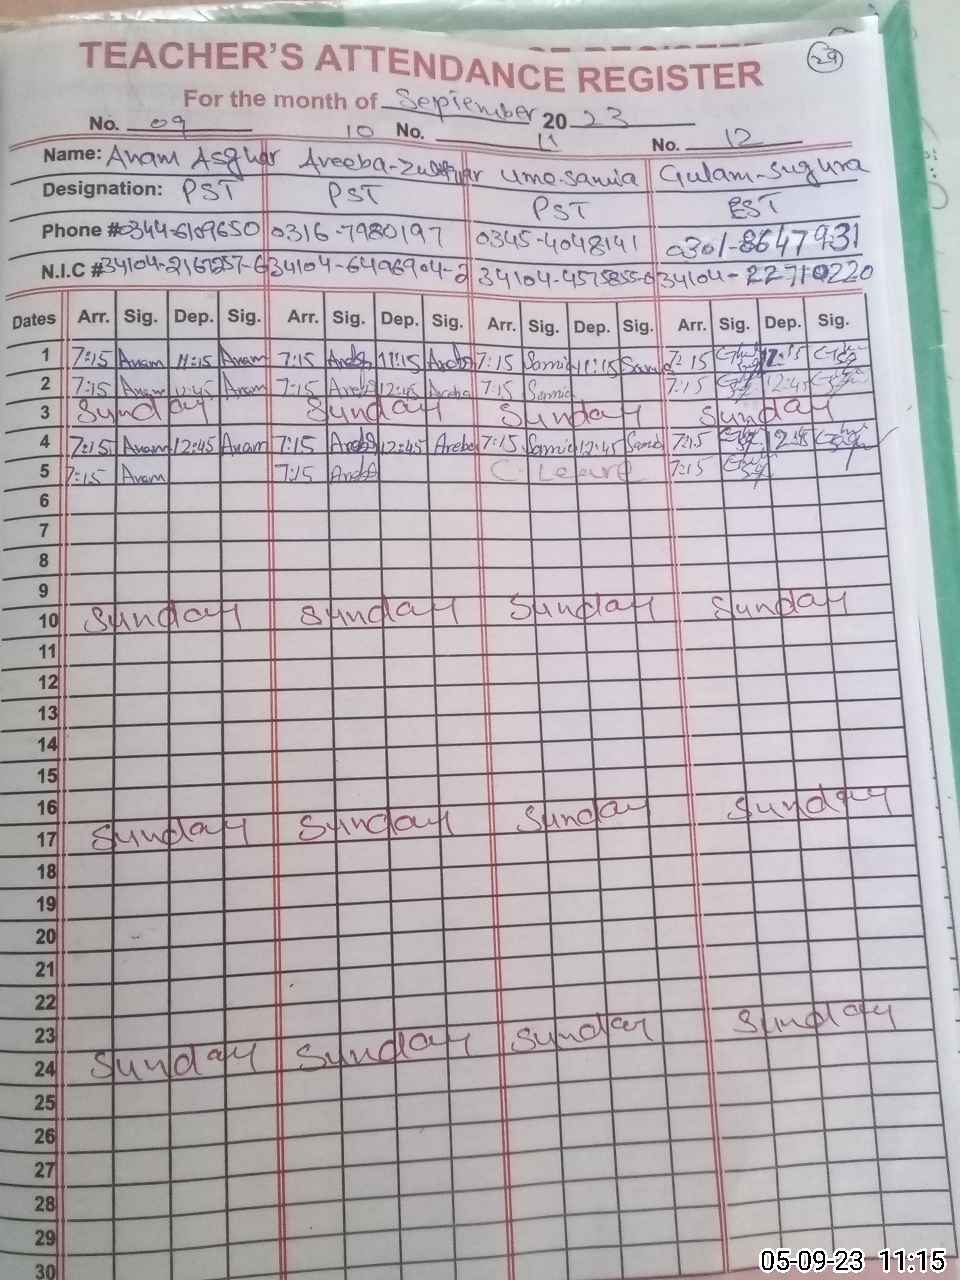 TEACHER'S ATTENDANCE REGISTER
29
For the month of September 2023
No. 09 10 No. 11 No. 12
Name: Anam Asghar Areeba-Zulfiqar Ume-Samia Gulam-Sughra
Designation: PST PST PST EST
Phone # 0344-6109650 0316-7980197 0345-4048141 0301-8647931
N.I.C # 34104-2167257-6 34104-6496904-2 34104-4575855-0 34104-22710220
Dates Arr. Sig. Dep. Sig. Arr. Sig. Dep. Sig. Arr. Sig. Dep. Sig. Arr. Sig. Dep. Sig.
1 7:15 Anam 11:15 Anam 7:15 Areeb 11:15 Areeb 7:15 Samia 11:15 Samia 7:15
2 7:15 Anam 12:45 Anam 7:15 Areeb 12:45 Areeba 7:15 Samia 7:15 12:45
3 Sunday Sunday Sunday Sunday
4 7:15 Anam 12:45 Anam 7:15 Areeb 12:45 Areeb 7:15 Samia 12:45 Samia 7:15
5 7:15 Anam 7:15 Areeb C. Leave 7:15
6
7
8
9
10 Sunday Sunday Sunday Sunday
11
12
13
14
15
16
17 Sunday Sunday Sunday Sunday
18
19
20
21
22
23
24 Sunday Sunday Sunday Sunday
25
26
27
28
29
30
05-09-23 11:15